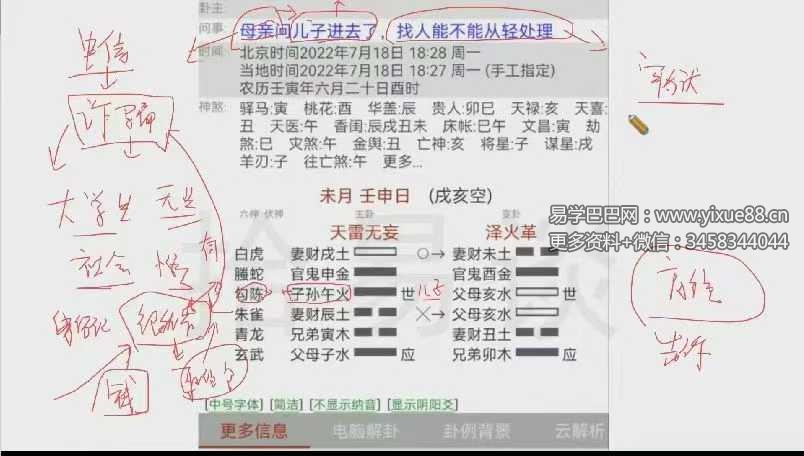 卦主:
问事: 母亲问儿子进去了，找人能不能从轻处理
时间: 北京时间2022年7月18日 18:28 周一
当地时间2022年7月18日 18:27 周一 (手工指定)
农历壬寅年六月二十日酉时
神煞: 驿马:寅 桃花:酉 华盖:辰 贵人:卯巳 天禄:亥 天喜:
丑 天医:午 香闺:辰戌丑未 床帐:巳午 文昌:寅 劫
煞:巳 灾煞:午 金舆:丑 亡神:亥 将星:子 谋星:戌
羊刃:子 往亡煞:午 更多...
未月 壬申日 (戌亥空)
六神 伏神 主卦 变卦
天雷无妄 泽火革
白虎 妻财戌土 ○→ 妻财未土
螣蛇 官鬼申金 官鬼酉金
勾陈 子孙午火 世 儿子 父母亥水 世
朱雀 妻财辰土 ×→ 父母亥水
青龙 兄弟寅木 妻财丑土
玄武 父母子水 应 兄弟卯木 应
[中号字体] [简洁] [不显示纳音] [显示阴阳爻]
更多信息 电脑解卦 卦例背景 云解析
易学巴巴网：www.yixue88.cn
更多资料+微信：3458344044
诈骗
大学生
社会
有
钱